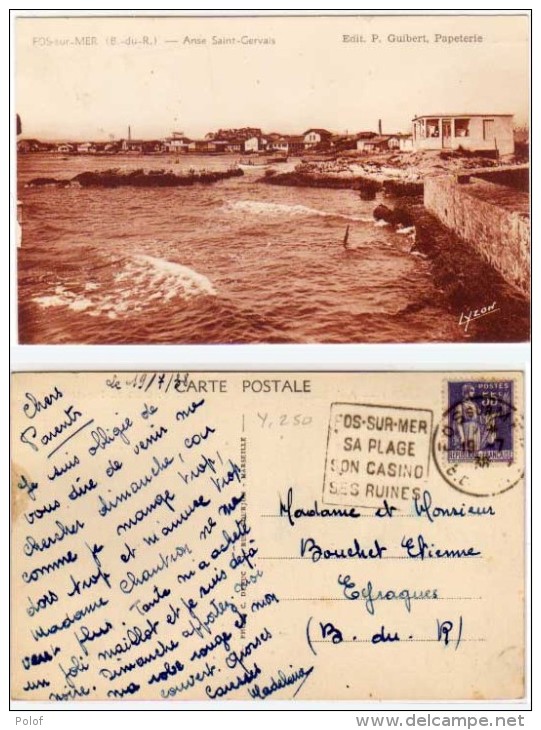 FOS-sur-MER (B.-du-R.) — Anse Saint-Gervais
Edit. P. Guibert, Papeterie
LYZON
CARTE POSTALE
le 19/7/38
Chers
Parents
Je suis obligée de
vous dire de venir me
chercher dimanche, car
comme je mange trop,
dors trop et m'amuse trop
Madame Chauvon ne me
veut plus. Tante m'a acheté
un joli maillot et je suis déjà
noire. Dimanche apportez moi
ma robe rouge et mon
couvert. Grosses
Caresses
Madeleine
Y, 250
MARSEILLE
FOS-SUR-MER
SA PLAGE
SON CASINO
SES RUINES
POSTES
REPUBLIQUE FRANÇAISE
Madame et Monsieur
Bouchet Etienne
Eyragues
(B. du R)
Polof
delcampe.net